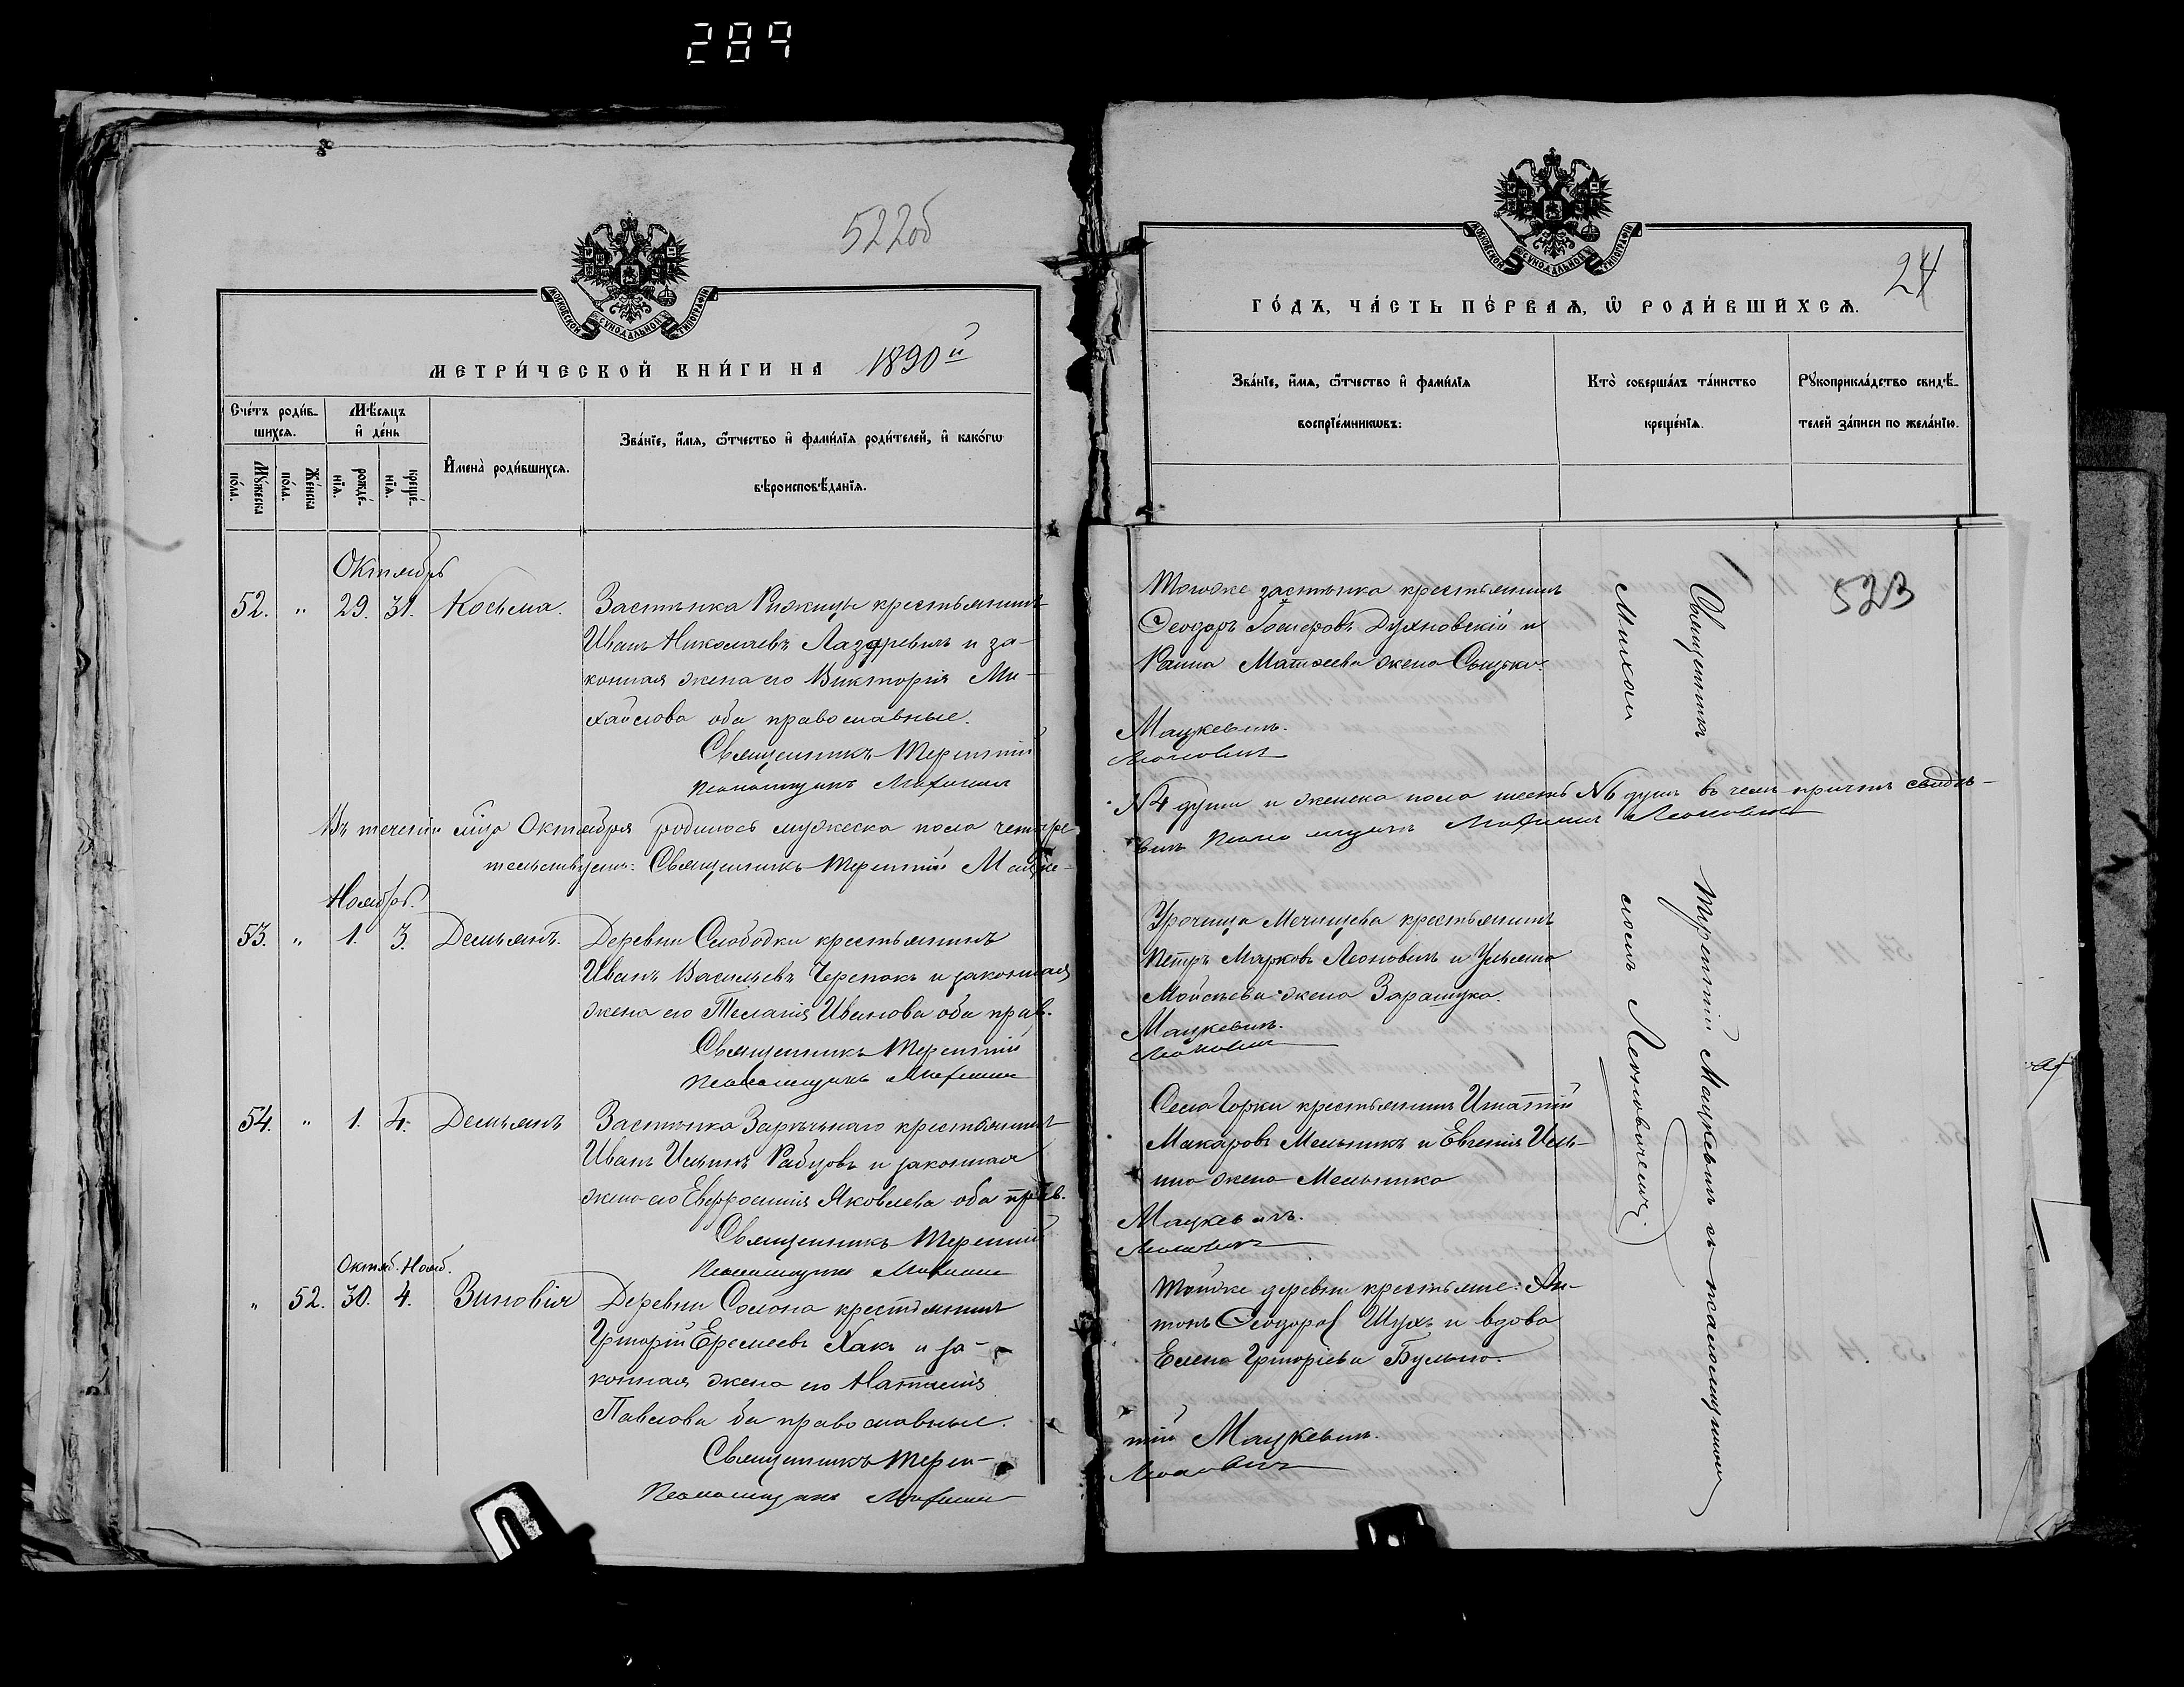 289
522об
МОСКОВСКОЙ СѴНОДАЛЬНОЙ ТИПОГРАФІИ
МЕТРИ́ЧЕСКОЙ КНИ́ГИ НА 1890й
Сче́тъ роди́в-
шихся.
Мѣ́сяцъ
и҆ де́нь
Мꙋ́жеска
по́ла.
Же́нска
по́ла.
рожде́-
нїя.
креще́-
нїя.
И҆мена̀ роди́вшихся.
Зва́нїе, и҆́мя, ѻ҆́тчество и҆ фами́лїя роди́телей, и҆ како́гѡ
вѣроисповѣ́данїя.
Октябрь
52. " 29. 31. Косьма. Застѣнка Рижицы крестьянинъ
Иванъ Николаевъ Лазаревичъ и за-
конная жена его Викторія Ми-
хайлова оба православные.
Священникъ Терентій
Псаломщикъ Михаилъ
Въ теченіи м-ца Октября родилось мужеска пола четыре
тельствуетъ: Священникъ Терентій Мацке-
Ноябрь.
53. " 1. 3. Демьянъ. Деревни Слободки крестьянинъ
Иванъ Васильевъ Черепокъ и законная
жена его Пелагія Иванова оба прав.
Священникъ Терентій
Псаломщикъ Михаилъ
54. " 1. 4. Демьянъ Застѣнка Зарѣчнаго крестьянинъ
Иванъ Ильинъ Рабцовъ и законная
жена его Евфросинія Яковлева оба прав.
Священникъ Терентій
Псаломщикъ Михаилъ
Октяб. Нояб.
" 52. 30. 4. Зиновія Деревни Солона крестьянинъ
Григорій Еремеевъ Хакъ и за-
конная жена его Наталія
Павлова ба православные.
Священникъ Терен-
Псаломщикъ Михаилъ
МОСКОВСКОЙ СѴНОДАЛЬНОЙ ТИПОГРАФІИ
24
ГО́ДЪ, ЧА́СТЬ ПЕ́РВАЯ, Ѡ҆ РОДИ́ВШИХСЯ.
Зва́нїе, и҆́мя, ѻ҆́тчество и҆ фами́лїя
воспрїе́мникѡвъ:
Кто̀ соверша́лъ та́инство
креще́нїя.
Рꙋкоприкла́дство свидѣ́-
телей за́писи по жела́нїю.
523
Тогоже застѣнка крестьянинъ
Ѳеодоръ Духновскій и
Матѳеева жена
Мацкевичъ.
Леоновичъ
№4 души и женска пола шесть №6 душъ въ чемъ причтъ свидѣ-
вичъ Псаломщикъ Михаилъ Леоновичъ
Урочища Мечищева крестьянинъ
Петръ Марковъ Леоновичъ и Ульяна
Мойсѣева жена Зарашука.
Мацкевичъ.
Леоновичъ
Села Горки крестьянинъ Игнатій
Макаровъ Мельникъ и Евгенія Иль-
ина жена Мельника
Мацкевичъ.
Леоновичъ
Тойже деревни крестьяне: Ан-
тонъ Ѳеодоров Шухъ и вдова
Елена Григоріева Булына.
тій Мацкевичъ.
Леоновичъ
Священникъ Терентій Мацкевичъ съ псаломщикомъ
Михаиломъ Леоновичемъ.